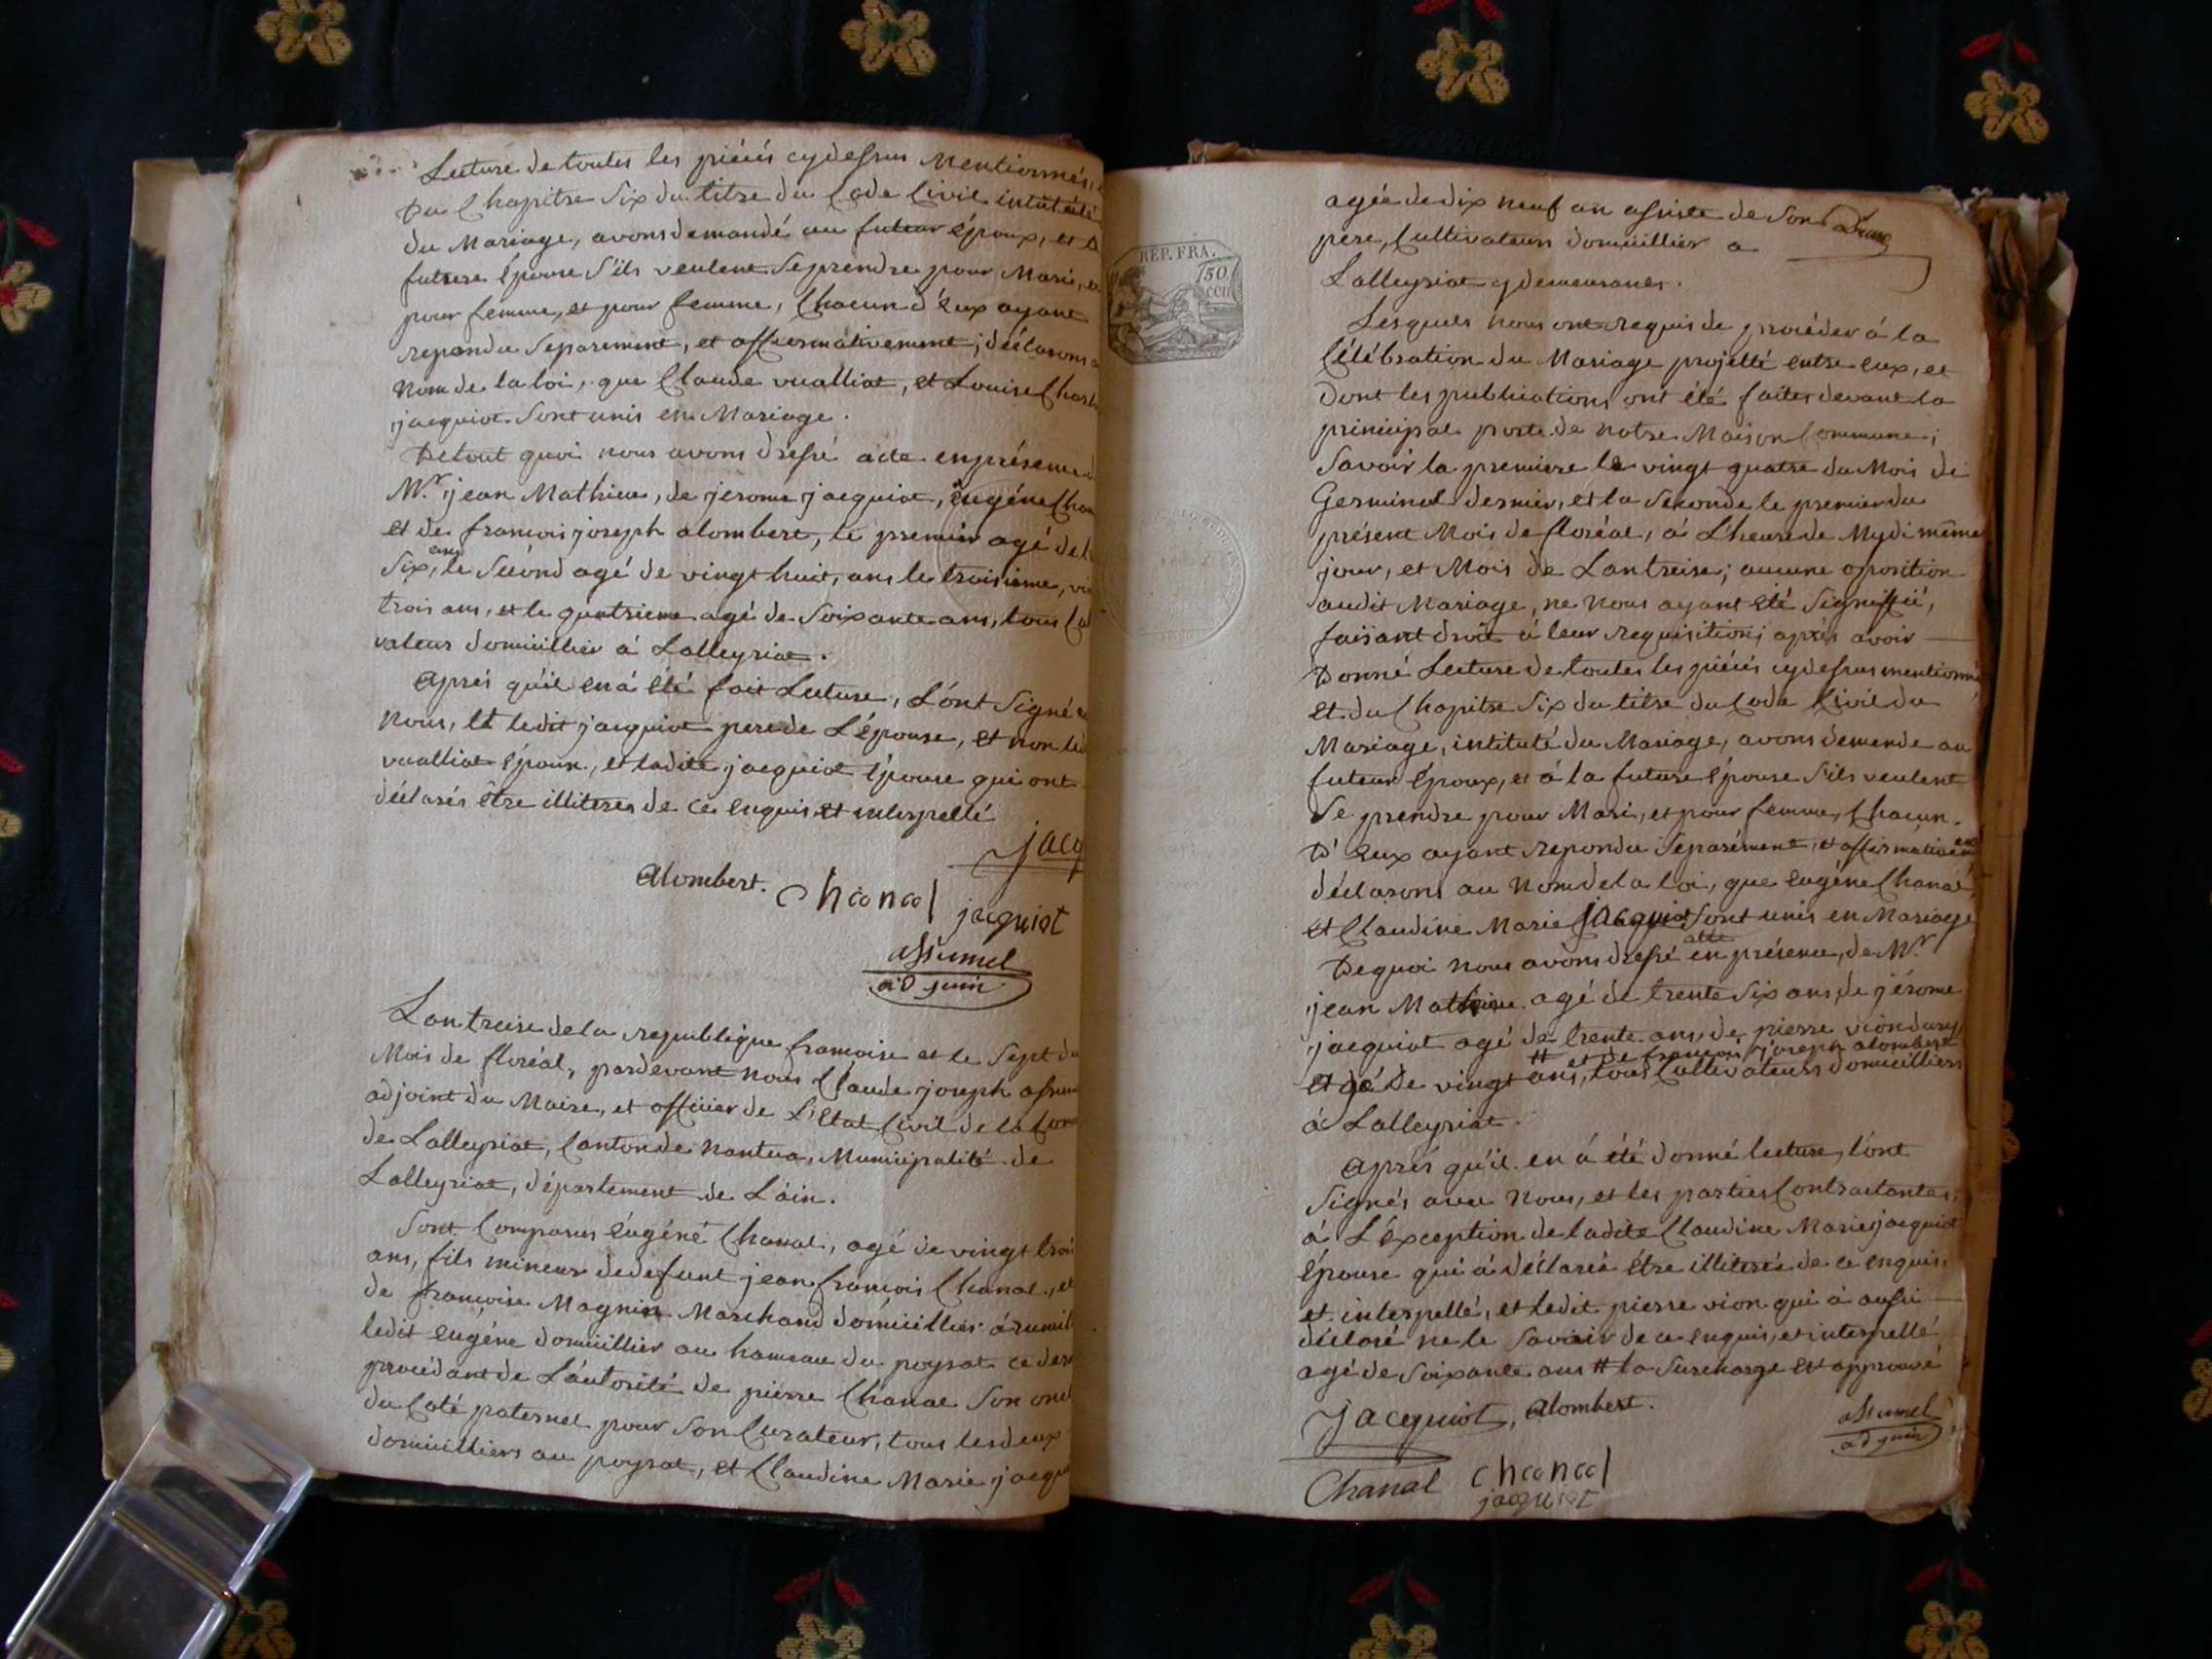 Lecture de toutes les piéces cydessus Mentionnés,
Du Chapitre Six du titre du Code Civil intitulé
du Mariage, avons demandé au futeur époux, et
future épouse S'ils veulent Se prendre pour Mari, et
pour femme, et pour femme, Chacun d'Eux ayant
repondu Separement, et affirmativement; déclarons
Nom de la loi, que Claude vualliat, et Louise
jacquiot Sont unis en Mariage.
De tout quoi nous avons dressé acte en présence
Mr. jean Mathieu, de jerome jacquiot, Eugéne
et de françois joseph alombert, le premier agé de
Six ans, le Second agé de vingt huit, ans le troisieme,
trois ans, et le quatrieme agé de Soixante ans, tous
vateurs domicillier á Lalleyriat.
Aprés qu'il en á été fait Lecture, L'ont Signé
Nous, Et ledit jacquiot pere de L'épouse, et non
vualliat époux, et ladite jacquiot épouse qui ont
déclarés être illiteres de ce enquis et interpellé
Jacq
Alombert. Chanal
jacquiot
assumel
ad juin
Lan treise de la republique françoise et le Sept du
Mois de floréal, pardevant nous Claude joseph
adjoint du Maire, et officier de L'Etat Civil de la
de Lalleyriat, Canton de Nantua, Municipalité de
Lalleyriat, département de L'ain.
Sont Comparus Eugéne Chanal, agé de vingt
ans, fils mineur de defunt jean françois Chanal, et
de françoise Magnin Marchand domicillier á
ledit Eugéne domicillier au hameau du poysat
procédant de L'autorité de pierre Chanal Son
du Coté paternel pour Son Curateur, tous les deux
domicilliers au poysat, et Claudine Marie
agée de dix neuf an assiste de Son
pere, Cultivateurs domicillier a
Lalleyriat y demeurants.
Lesquels nous ont requis de procéder á la
Célébration du Mariage projetté entre eux, et
Dont les publications ont été faites devant la
principal porte de notre Maison Commune;
Savoir la premiere le vingt quatre du Mois de
Germinal dernier, et la Seconde le premier du
présent Mois de floréal, á L'heure de Mydi même
jour, et Mois de Lan treise; aucune oposition
audit Mariage, ne Nous ayant été Signiffié,
faisant droit á leur requisition; aprés avoir
Donné Lecture de toutes les piéces cydessus mentionné
et du Chapitre Six du titre du Code Civil du
Mariage, intitulé du Mariage, avons demende au
futeur époux, et á la future épouse S'ils veulent
Se prendre pour Mari, et pour femme, Chacun
D'Eux ayant repondu Separément, et affirmativement
déclarons au Nom de la loi, que Eugéne Chanal,
et Claudine Marie jacquiot Sont unis en Mariage
De quoi nous avons dressé acte en présence, de Mr.
jean Mathieu agé de trente Six ans, de jérome
jacquiot agé de trente ans, de pierre
# et de françois joseph alombert
et agé de vingt ans, tous Cultivateurs domicilliers
á Lalleyriat.
Aprés qu'il en á été donné lecture, l'ont
Signés avec Nous, et les parties Contractantes,
á L'éxception de ladite Claudine Marie jacquiot
épouse qui á déclarée être illiterée de ce enquis,
et interpellé, et ledit pierre vion qui á aussi
déclaré ne le Savoir de ce enquis, et interpellé
agé de Soixante ans # la Surcharge est approuvé
Jacquiot, Alombert.
assumel
ad juin
Chanal Chanal
jacquiot
REP. FRA.
50
cen